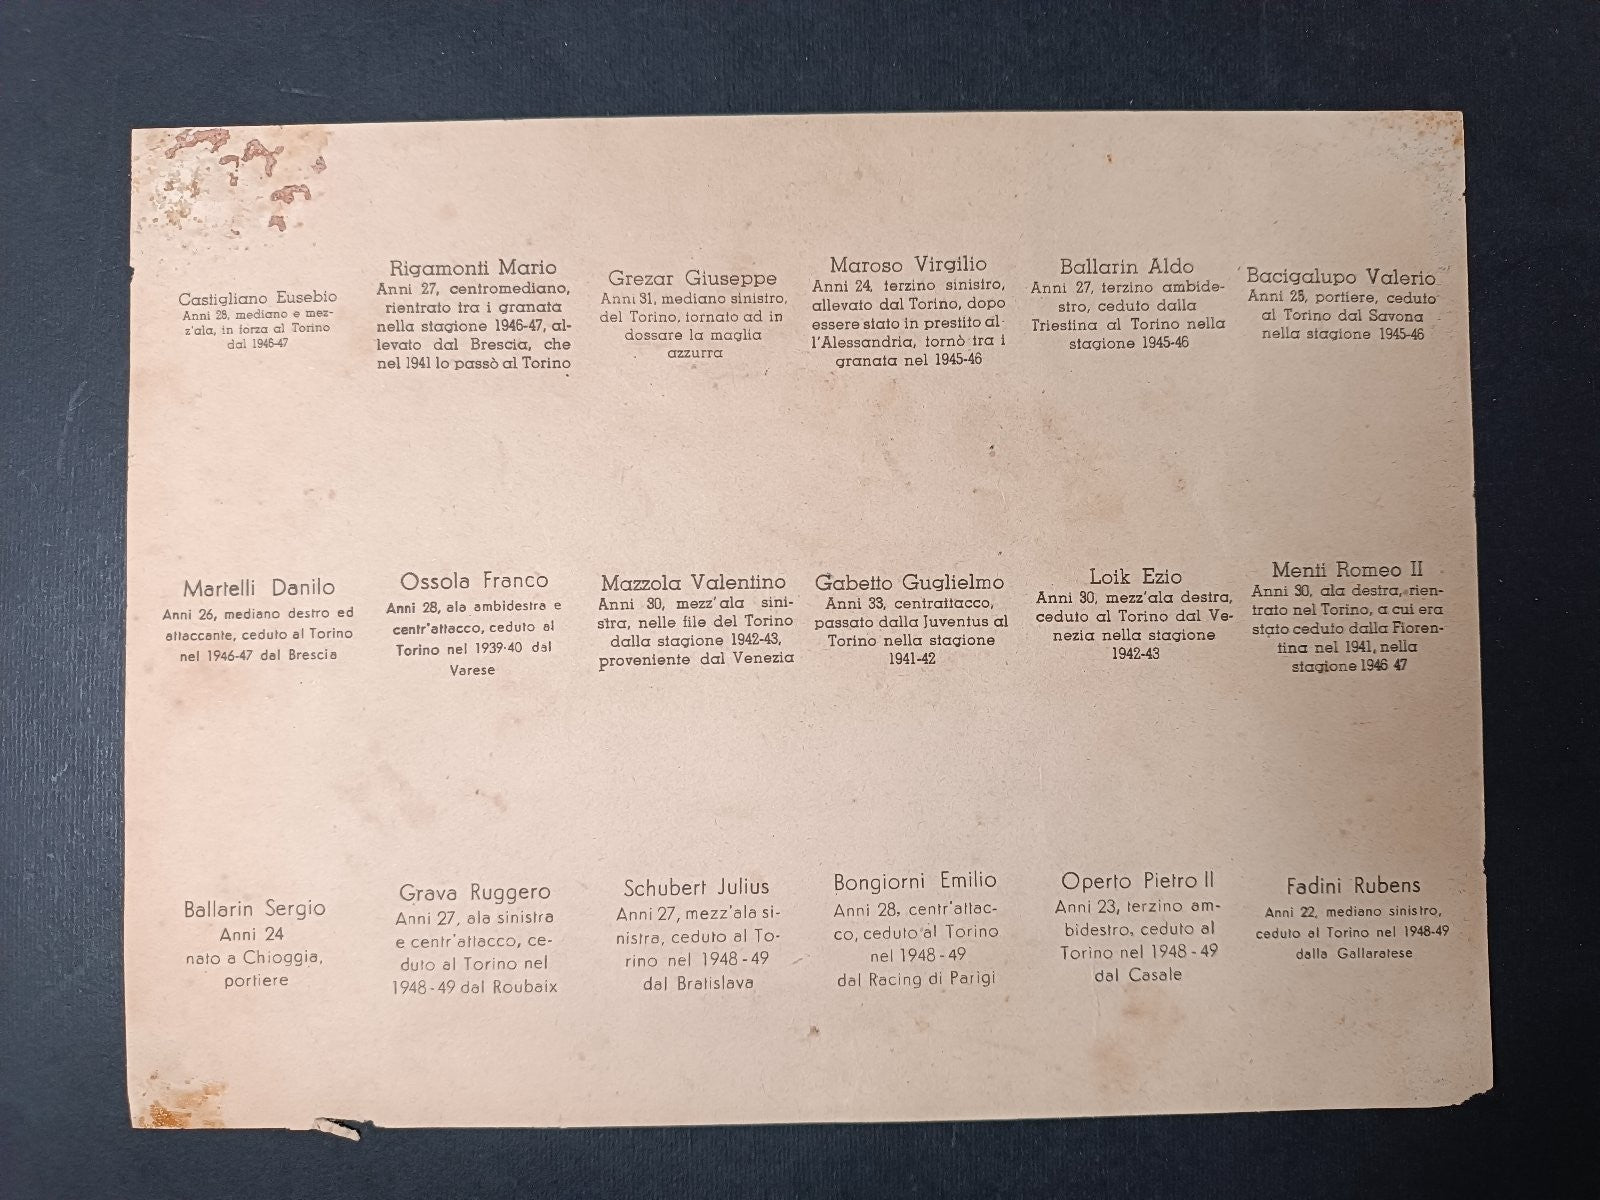 Castigliano Eusebio
Anni 28, mediano e mez-
z'ala, in forza al Torino
dal 1946-47
Rigamonti Mario
Anni 27, centromediano,
rientrato tra i granata
nella stagione 1946-47, al-
levato dal Brescia, che
nel 1941 lo passò al Torino
Grezar Giuseppe
Anni 31, mediano sinistro,
del Torino, tornato ad in
dossare la maglia
azzurra
Maroso Virgilio
Anni 24, terzino sinistro,
allevato dal Torino, dopo
essere stato in prestito al-
l'Alessandria, tornò tra i
granata nel 1945-46
Ballarin Aldo
Anni 27, terzino ambide-
stro, ceduto dalla
Triestina al Torino nella
stagione 1945-46
Bacigalupo Valerio
Anni 25, portiere, ceduto
al Torino dal Savona
nella stagione 1945-46
Martelli Danilo
Anni 26, mediano destro ed
attaccante, ceduto al Torino
nel 1946-47 dal Brescia
Ossola Franco
Anni 28, ala ambidestra e
centr'attacco, ceduto al
Torino nel 1939-40 dal
Varese
Mazzola Valentino
Anni 30, mezz'ala sini-
stra, nelle file del Torino
dalla stagione 1942-43,
proveniente dal Venezia
Gabetto Guglielmo
Anni 33, centrattacco,
passato dalla Juventus al
Torino nella stagione
1941-42
Loik Ezio
Anni 30, mezz'ala destra,
ceduto al Torino dal Ve-
nezia nella stagione
1942-43
Menti Romeo II
Anni 30, ala destra, rien-
trato nel Torino, a cui era
stato ceduto dalla Fioren-
tina nel 1941, nella
stagione 1946 47
Ballarin Sergio
Anni 24
nato a Chioggia,
portiere
Grava Ruggero
Anni 27, ala sinistra
e centr'attacco, ce-
duto al Torino nel
1948-49 dal Roubaix
Schubert Julius
Anni 27, mezz'ala si-
nistra, ceduto al To-
rino nel 1948-49
dal Bratislava
Bongiorni Emilio
Anni 28, centr'attac-
co, ceduto al Torino
nel 1948-49
dal Racing di Parigi
Operto Pietro II
Anni 23, terzino am-
bidestro, ceduto al
Torino nel 1948-49
dal Casale
Fadini Rubens
Anni 22, mediano sinistro,
ceduto al Torino nel 1948-49
dalla Gallaratese